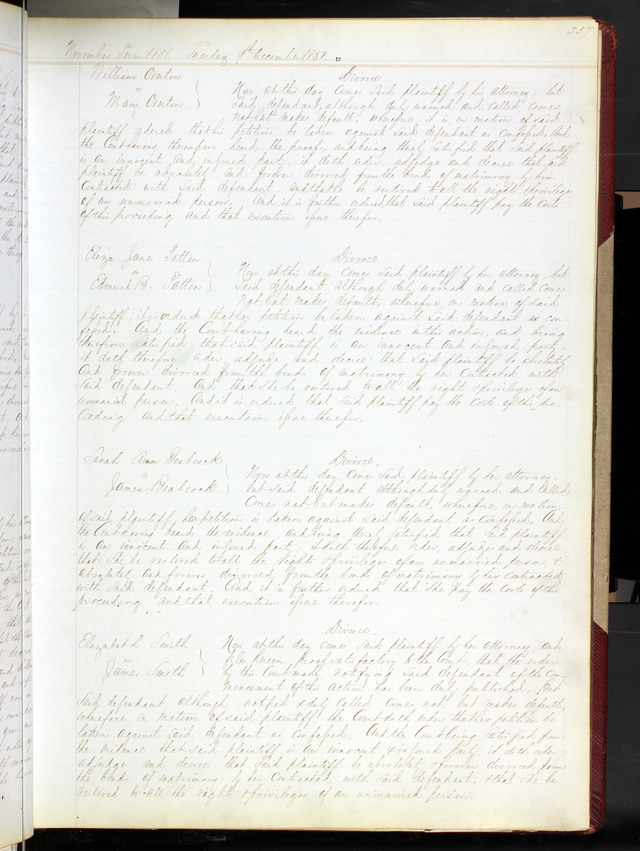 257
November Term 1851. Tuesday 9th December 1851.
William Orinton Divorce
vs Now at this day comes said plaintiff by his attorney, but
Mary Orinton said defendant, although duly warned and called, comes
not but makes default, wherefore, it is, on motion of said
plaintiff ordered that his petition be taken against said defendant as confessed, And
the Court having therefore heard the proof, and being thereby satisfied that said plaintiff
is an innocent and injured party, it doth order, adjudge and decree that said
plaintiff be absolutely and forever divorced from the bonds of matrimony by him
contracted with said defendant, and that he be restored to all the rights & privileges
of an unmarried person. And it is further ordered that said plaintiff pay the costs
of this proceeding and that execution issue therefor.
Eliza Jane Patten Divorce
vs Now at this day comes said plaintiff by her attorney, but
Edmund B. Patten said defendant although duly warned and called comes
not but makes default, wherefore, on motion of said
plaintiff, it is ordered that her petition be taken against said defendant as con-
fessed. And the Court having heard the evidence in this action, and being
therefrom satisfied that said plaintiff is an innocent and injured party,
it doth therefore order, adjudge and decree that said plaintiff be absolutely
and forever divorced from the bonds of matrimony by her contracted with
said defendant. And that she be restored to all the rights & privileges of an
unmarried person, And it is ordered that said plaintiff pay the costs of this pro-
ceeding and that execution issue therefor.
Sarah Ann Beabcock Divorce.
vs Now at this day comes said plaintiff by her attorney,
James Beabcock but said defendant although duly warned and called
comes not but makes default, wherefore, on motion
of said plaintiff, her petition is taken against said defendant as confessed, And
the Court having heard the evidence, and being thereby satisfied that said plaintiff
is an innocent and injured party, it doth therefore order, adjudge and decree
that she be restored to all the rights & privileges of an unmarried person, &
absolutely and forever divorced from the bonds of matrimony by her contracted
with said defendant. And it is further ordered that she pay the costs of this
proceeding and that execution issue therefor.
Elizabeth Smith Divorce.
vs Now at this day comes said plaintiff by her attorney and
James Smith files herein, proof satisfactory to the Court, that the order
by this Court made, notifying said defendant of the com-
mencement of this action has been duly published, but
said defendant although notified & duly called comes not but makes default,
wherefore on motion of said plaintiff the Court doth order that her petition be
taken against said defendant as confessed. And the Court being satisfied, from
the evidence that said plaintiff is an innocent & injured party, it doth order
adjudge and decree that said plaintiff be absolutely & forever divorced from
the bonds of matrimony by her contracted with said defendant, & that she be
restored to all the rights & privileges of an unmarried person.